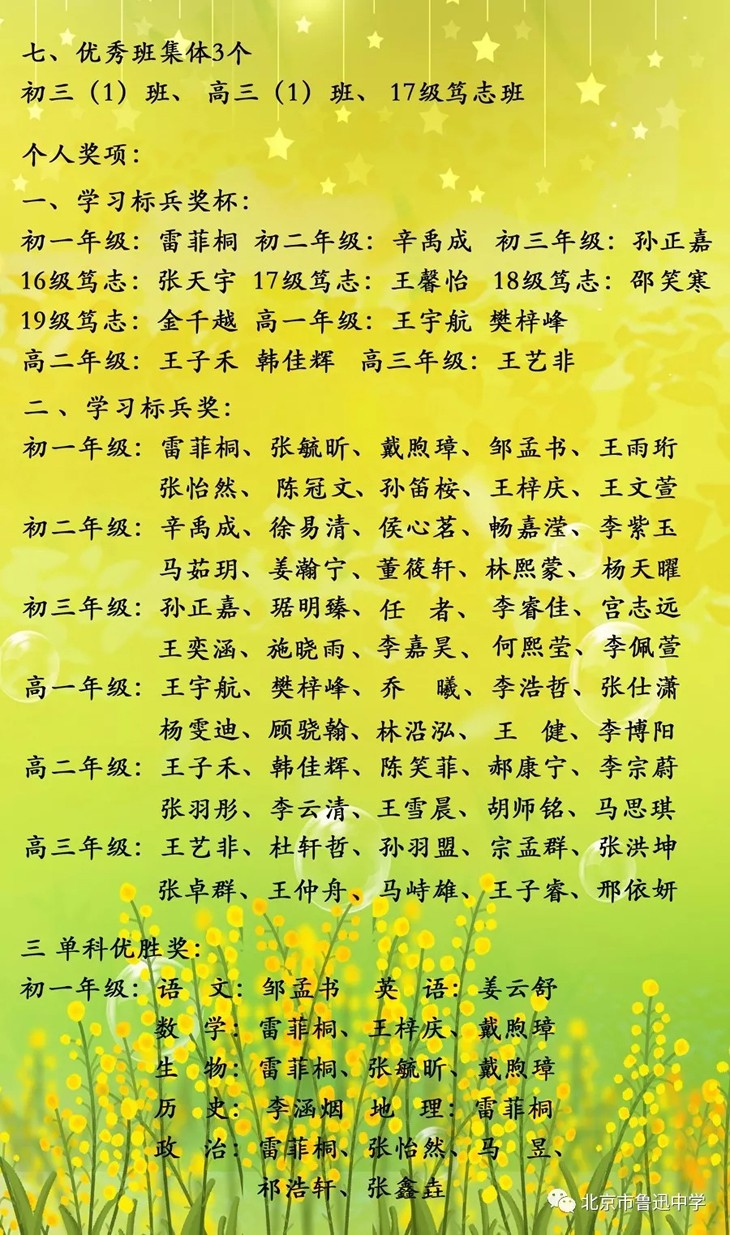 七、优秀班集体3个
初三（1）班、 高三（1）班、 17级笃志班
个人奖项：
一、学习标兵奖杯：
初一年级：雷菲桐 初二年级：辛禹成 初三年级：孙正嘉
16级笃志：张天宇 17级笃志：王馨怡 18级笃志：邵笑寒
19级笃志：金千越 高一年级：王宇航 樊梓峰
高二年级：王子禾 韩佳辉 高三年级：王艺非
二 、学习标兵奖：
初一年级：雷菲桐、张毓昕、戴煦璋、邹孟书、王雨珩
张怡然、 陈冠文、孙笛桉、王梓庆、王文萱
初二年级：辛禹成、徐易清、侯心茗、畅嘉滢、李紫玉
马茹玥、姜瀚宁、董筱轩、林熙蒙、 杨天曜
初三年级：孙正嘉、琚明臻、任 者、 李睿佳、宫志远
王奕涵、施晓雨、李嘉昊、 何熙莹、李佩萱
高一年级：王宇航、樊梓峰、乔 曦、李浩哲、张仕潇
杨雯迪、顾骁翰、林沿泓、 王 健、李博阳
高二年级：王子禾、韩佳辉、陈笑菲、郝康宁、李宗蔚
张羽彤、李云清、王雪晨、胡师铭、马思琪
高三年级：王艺非、杜轩哲、孙羽盟、宗孟群、张洪坤
张卓群、王仲舟、马峙雄、王子睿、邢依妍
三 单科优胜奖：
初一年级：语 文：邹孟书 英 语：姜云舒
数 学：雷菲桐、王梓庆、戴煦璋
生 物：雷菲桐、张毓昕、戴煦璋
历 史： 李涵烟 地 理：雷菲桐
政 治：雷菲桐、张怡然、马 昱、
祁浩轩、张鑫垚
北京市鲁迅中学